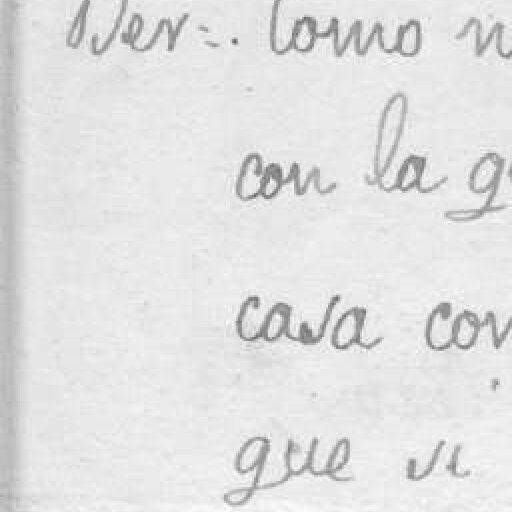 Ber=. Como
con la
casa con
que si